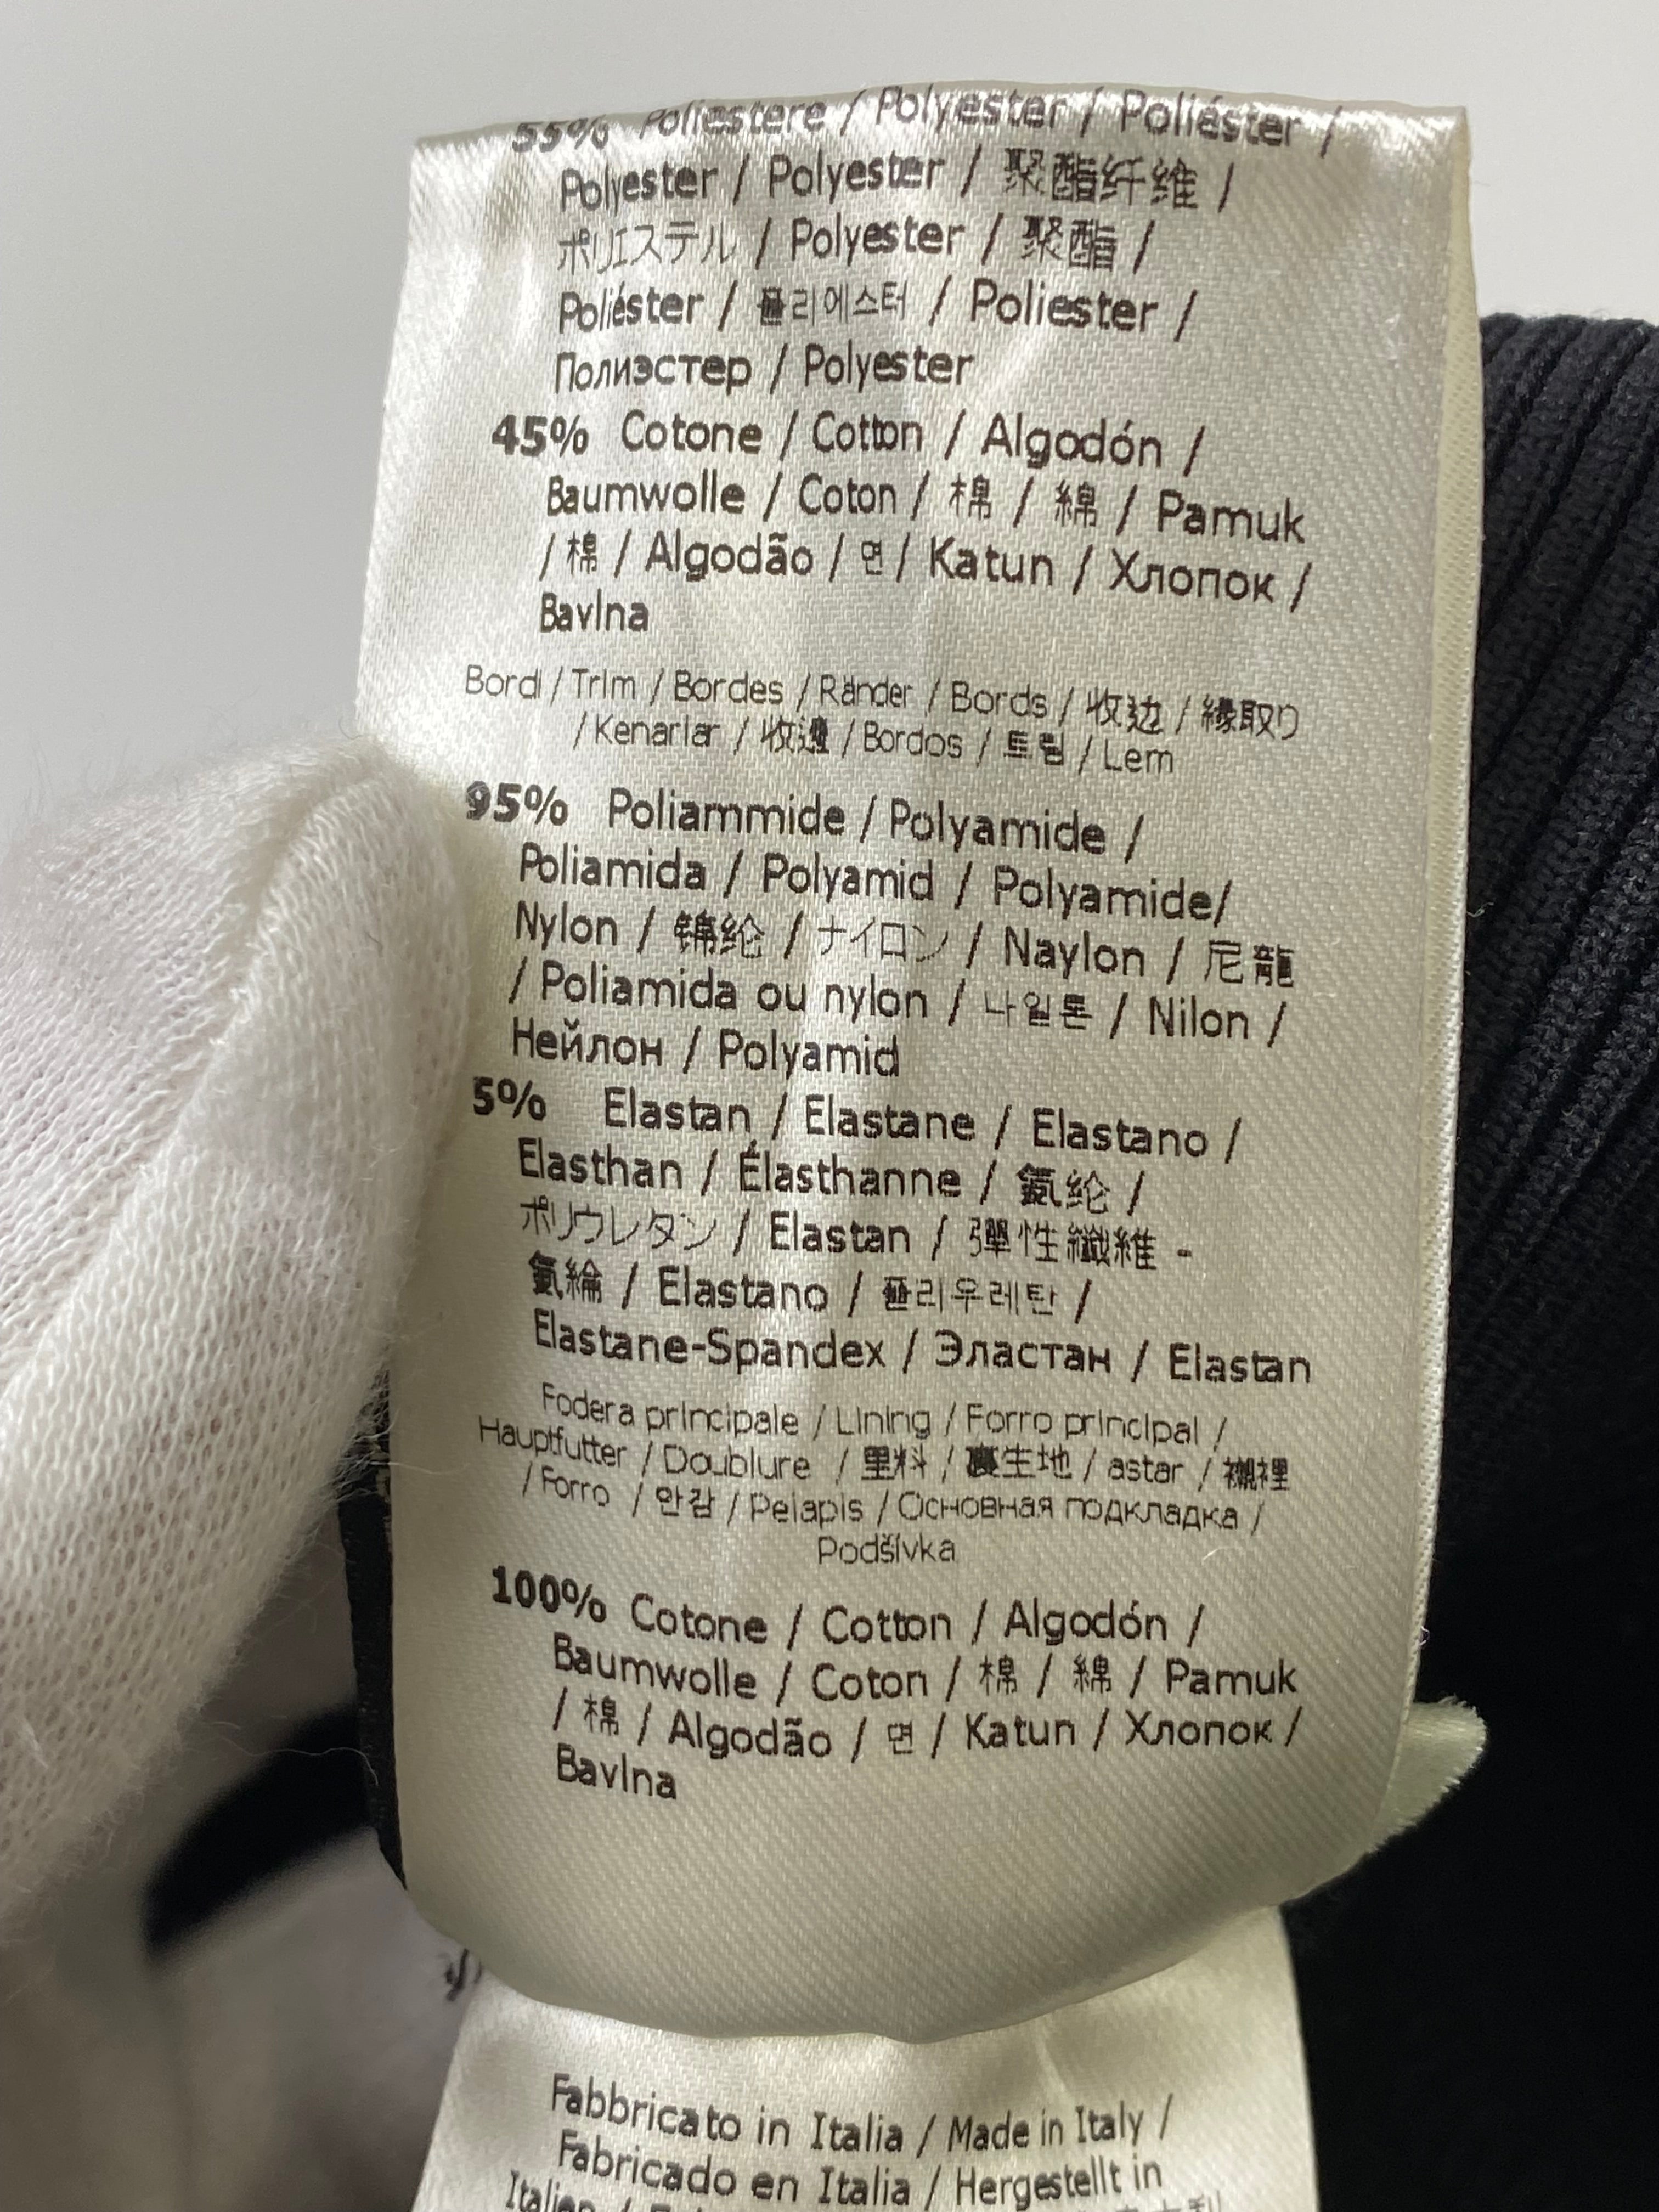 55% Poliestere / Polyester / Poliéster /
Polyester / Polyester / 聚酯纤维 /
ポリエステル / Polyester / 聚酯 /
Poliéster / 폴리에스터 / Poliester /
Полиэстер / Polyester
45% Cotone / Cotton / Algodón /
Baumwolle / Coton / 棉 / 綿 / Pamuk
/ 棉 / Algodão / 면 / Katun / Хлопок /
Bavlna
Bordi / Trim / Bordes / Ränder / Bords / 收边 / 縁取り
/ Kenarlar / 收邊 / Bordos / 트림 / Lem
95% Poliammide / Polyamide /
Poliamida / Polyamid / Polyamide/
Nylon / 锦纶 / ナイロン / Naylon / 尼龍
/ Poliamida ou nylon / 나일론 / Nilon /
Нейлон / Polyamid
5% Elastan / Elastane / Elastano /
Elasthan / Élasthanne / 氨纶 /
ポリウレタン / Elastan / 彈性纖維 -
氨綸 / Elastano / 폴리우레탄 /
Elastane-Spandex / Эластан / Elastan
Fodera principale / Lining / Forro principal /
Hauptfutter / Doublure / 里料 / 裏生地 / astar / 襯裡
/ Forro / 안감 / Pelapis / Основная подкладка /
Podšívka
100% Cotone / Cotton / Algodón /
Baumwolle / Coton / 棉 / 綿 / Pamuk
/ 棉 / Algodão / 면 / Katun / Хлопок /
Bavlna
Fabbricato in Italia / Made in Italy /
Fabricado en Italia / Hergestellt in
Italien /